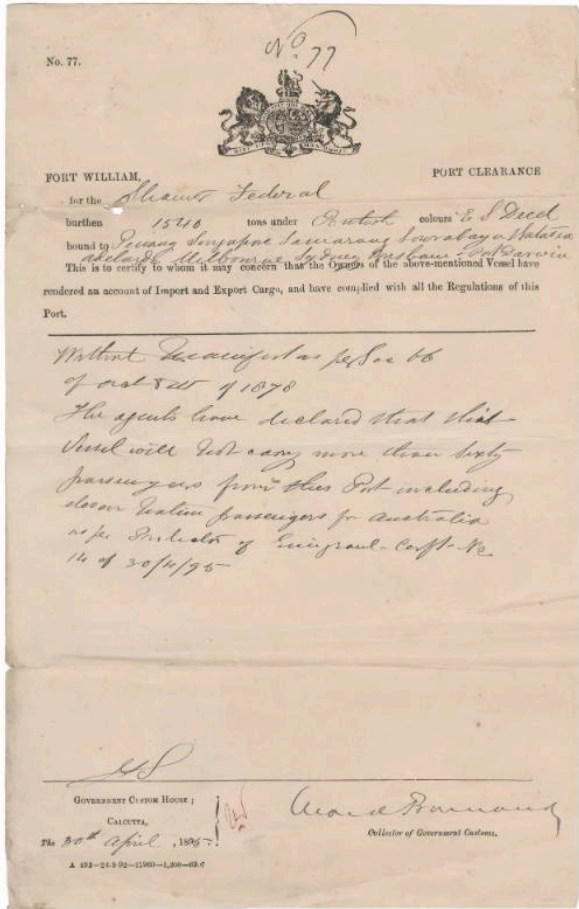 No. 77
No. 77.
FORT WILLIAM,
PORT CLEARANCE
for the Steamer Federal
burthen 1540 tons under British colours E S Deed
bound to Penang Singapore Samarang Sourabaya Batavia
Adelaide Melbourne Sydney Brisbane Port Darwin
This is to certify to whom it may concern that the Owners of the above-mentioned Vessel have
rendered an account of Import and Export Cargo, and have complied with all the Regulations of this
Port.
Without Manifest as per Sec 66
of Act of 1878
The agents have declared that this
Vessel will not carry more than sixty
passengers from this Port including
eleven Native passengers for Australia
as per Protector of Emigrant Certft No
14 of 30/4/95
GOVERNMENT CUSTOM HOUSE;
CALCUTTA,
The 30th April, 1895
Collector of Government Customs.
A 492—24-8-92—11960—1,200—